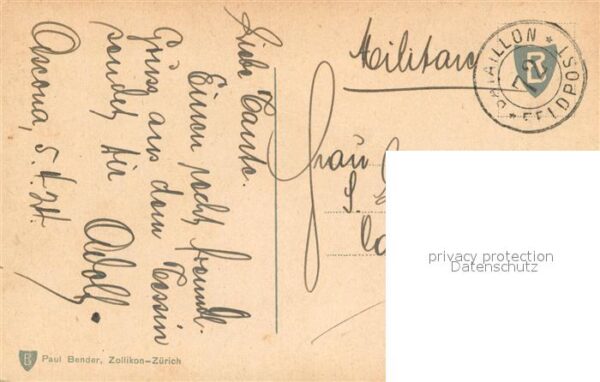 Liebe Tante.
Einen recht freundl.
Gruss aus dem Tessin
sendet Dir
Adolf.
Ascona, 5.4.24.
Militaria
BATAILLON * FELDPOST *
Frau
S.
privacy protection
Datenschutz
Paul Bender, Zollikon-Zürich